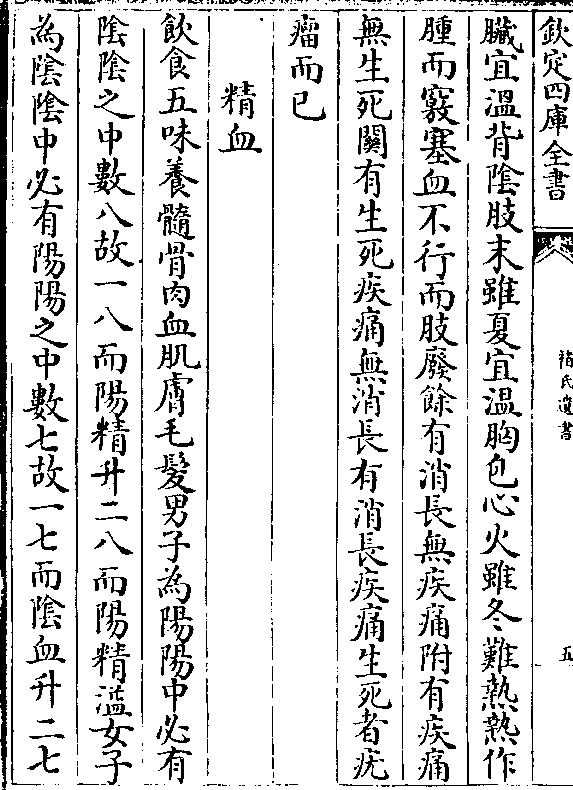 欽定四庫全書
褚氏遺書
五
臓宜溫背陰肢末雖夏宜溫胸包心火雖冬難熱熱作
腫而竅塞血不行而肢廢餘有消長無疾痛附有疾痛
無生死關有生死疾痛無消長有消長疾痛生死者疣
瘤而已
精血
飲食五味養髓骨肉血肌膚毛髮男子為陽陽中必有
陰陰之中數八故一八而陽精升二八而陽精溢女子
為陰陰中必有陽陽之中數七故一七而陰血升二七